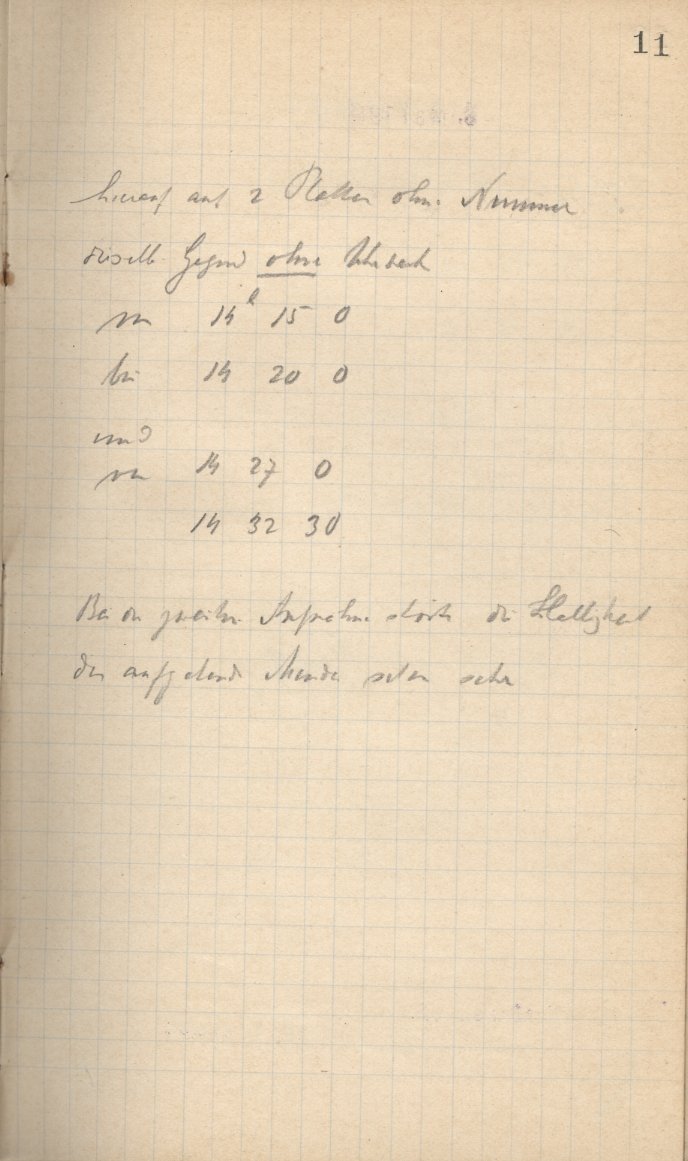 11
hierauf auf 2 Platten ohne Nummer
dieselbe Gegend ohne Uhrwerk
von 14h 15 0
bis 14 20 0
und
von 14 27 0
14 32 30
Bei der zweiten Aufnahme stört die Helligkeit
des aufgehenden Mondes schon sehr